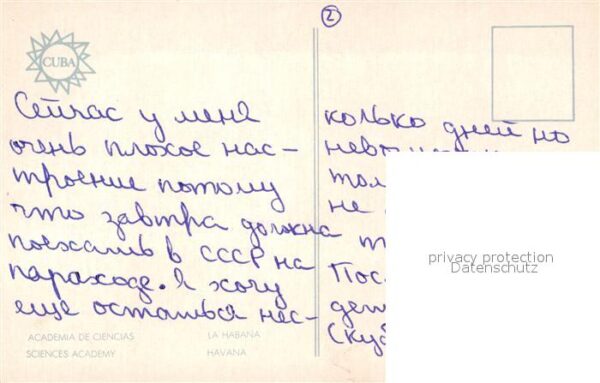 2
CUBA
Сейчас у меня
очень плохое нас-
троение потому
что завтра должна
поехать в СССР на
параходе. Я хочу
еще остаться нес-
колько дней но
не
privacy protection
Datenschutz
ACADEMIA DE CIENCIAS
SCIENCES ACADEMY
LA HABANA
HAVANA